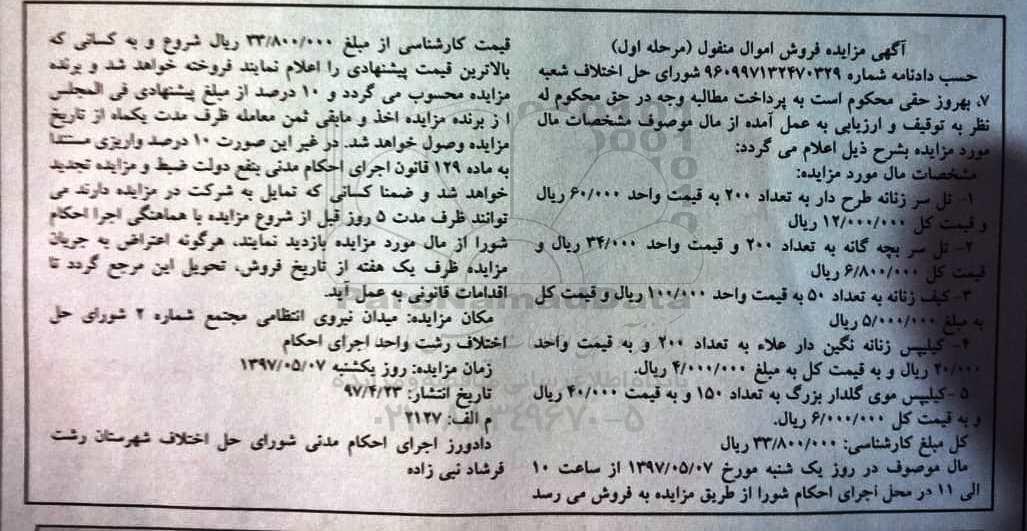 آگهی مزایده فروش اموال منقول (مرحله اول)
حسب دادنامه شماره ۹۶۰۹۹۷۱۳۲۴۷۰۳۲۹ شورای حل اختلاف شعبه
۷، بهروز حقی محکوم است به پرداخت مطالبه وجه در حق محکوم له
نظر به توقیف و ارزیابی به عمل آمده از مال موصوف مشخصات مال
مورد مزایده بشرح ذیل اعلام می گردد:
مشخصات مال مورد مزایده:
۱- تل سر زنانه طرح دار به تعداد ۲۰۰ به قیمت واحد ۶۰/۰۰۰ ریال
و قیمت کل ۱۲/۰۰۰/۰۰۰ ریال
۲- تل سر بچه گانه به تعداد ۲۰۰ و قیمت واحد ۳۴/۰۰۰ ریال و
قیمت کل ۶/۸۰۰/۰۰۰ ریال
۳- کیف زنانه به تعداد ۵۰ به قیمت واحد ۱۰۰/۰۰۰ ریال و قیمت کل
به مبلغ ۵/۰۰۰/۰۰۰ ریال
۴- کیلیپس زنانه نگین دار علاء به تعداد ۲۰۰ و به قیمت واحد
۲۰/۰۰۰ ریال و به قیمت کل به مبلغ ۴/۰۰۰/۰۰۰ ریال.
۵-کیلیپس موی گلدار بزرگ به تعداد ۱۵۰ و به قیمت ۴۰/۰۰۰ ریال
و به قیمت کل ۶/۰۰۰/۰۰۰ ریال.
کل مبلغ کارشناسی: ۳۳/۸۰۰/۰۰۰ ریال
مال موصوف در روز یک شنبه مورخ ۱۳۹۷/۰۵/۰۷ از ساعت ۱۰
الی ۱۱ در محل اجرای احکام شورا از طریق مزایده به فروش می رسد
قیمت کارشناسی از مبلغ ۳۳/۸۰۰/۰۰۰ ریال شروع و به کسانی که
بالاترین قیمت پیشنهادی را اعلام نمایند فروخته خواهد شد و برنده
مزایده محسوب می گردد و ۱۰ درصد از مبلغ پیشنهادی فی المجلس
ا ز برنده مزایده اخذ و مابقی ثمن معامله ظرف مدت یکماه از تاریخ
مزایده وصول خواهد شد. در غیر این صورت ۱۰ درصد واریزی مستندا
به ماده ۱۲۹ قانون اجرای احکام مدنی بنفع دولت ضبط و مزایده تجدید
خواهد شد و ضمنا کسانی که تمایل به شرکت در مزایده دارند می
توانند ظرف مدت ۵ روز قبل از شروع مزایده با هماهنگی اجرا احکام
شورا از مال مورد مزایده بازدید نمایند، هرگونه اعتراض به جریان
مزایده ظرف یک هفته از تاریخ فروش، تحویل این مرجع گردد تا
اقدامات قانونی به عمل آید.
مکان مزایده: میدان نیروی انتظامی مجتمع شماره ۲ شورای حل
اختلاف رشت واحد اجرای احکام
زمان مزایده: روز یکشنبه ۱۳۹۷/۰۵/۰۷
تاریخ انتشار: ۹۷/۴/۲۳
م الف: ۲۱۲۷
دادورز اجرای احکام مدنی شورای حل اختلاف شهرستان رشت
فرشاد نبی زاده